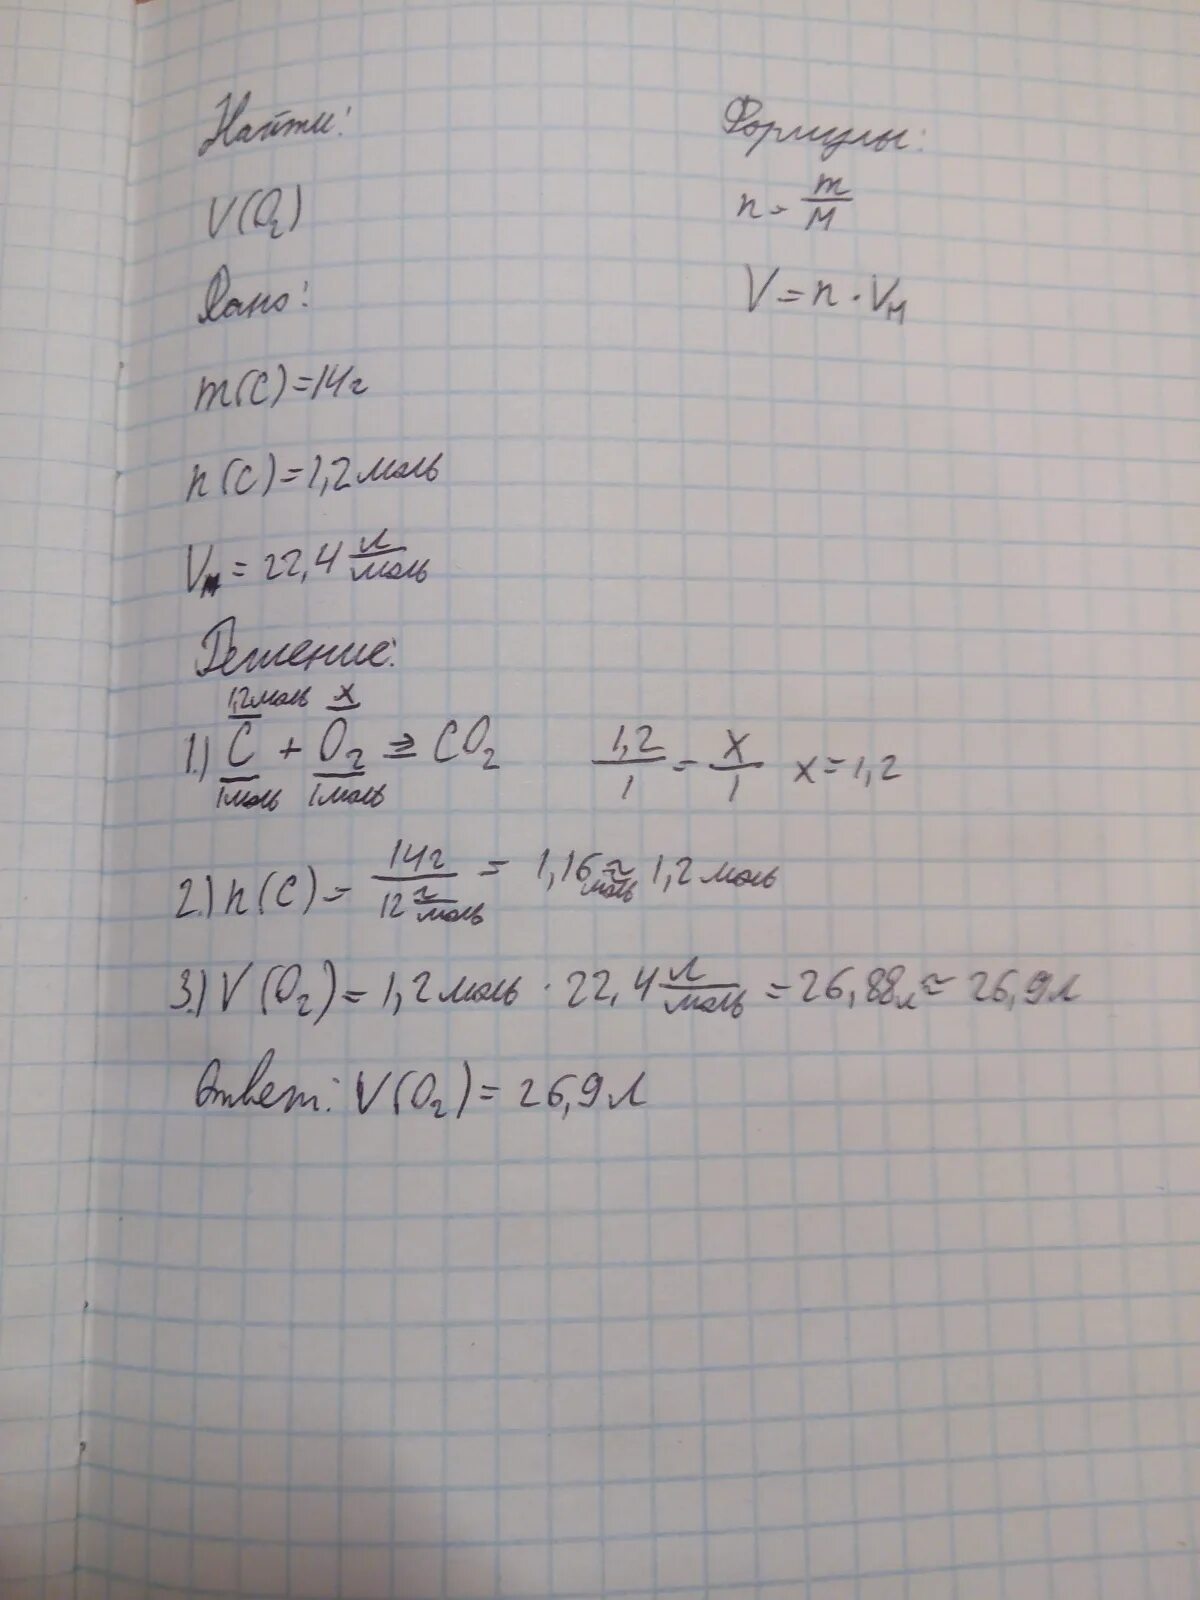 Найти:
V(O₂)
Дано:
m(C)=14г
n(C)=1,2моль
Vм = 22,4 л/моль
Формулы:
n = m/M
V = n · Vм
Решение:
1,2моль x
1.) C + O₂ ⇒ CO₂ 1,2/1 = x/1 x = 1,2
1моль 1моль
2.) n(C) = 14г/12 г/моль = 1,16 моль ≈ 1,2 моль
3.) V(O₂) = 1,2моль · 22,4 л/моль = 26,88л ≈ 26,9л
Ответ: V(O₂) = 26,9л